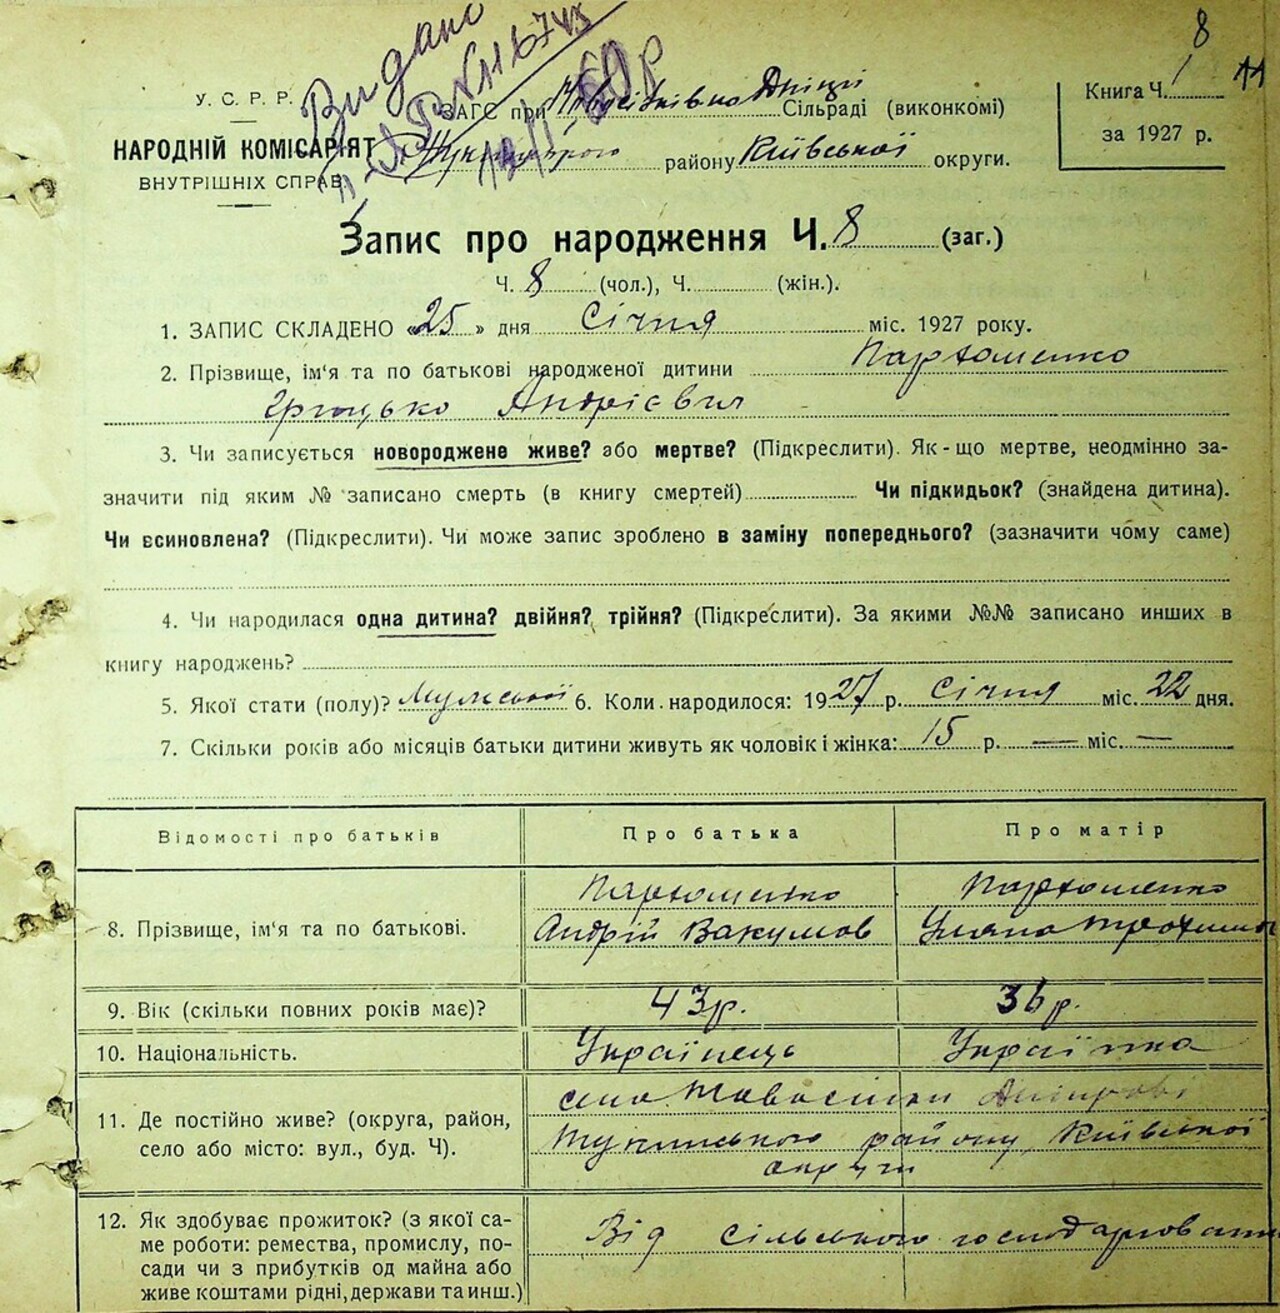 Видано
№ 116743
8
11
У. С. Р. Р.
НАРОДНІЙ КОМІСАРІЯТ
ВНУТРІШНІХ СПРАВ.
ЗАГС при Сільраді (виконкомі)
району Київської округи.
Книга Ч. 1
за 1927 р.
Запис про народження Ч. 8 (заг.)
Ч. 8 (чол.), Ч. (жін.).
1. ЗАПИС СКЛАДЕНО «25» дня Січня міс. 1927 року.
2. Прізвище, ім'я та по батькові народженої дитини Пархоменко
Грицько Андрієвич
3. Чи записується новороджене живе? або мертве? (Підкреслити). Як-що мертве, неодмінно за-
значити під яким № записано смерть (в книгу смертей) Чи підкидьок? (знайдена дитина).
Чи всиновлена? (Підкреслити). Чи може запис зроблено в заміну попереднього? (зазначити чому саме)
4. Чи народилася одна дитина? двійня? трійня? (Підкреслити). За якими №№ записано инших в
книгу народжень?
5. Якої стати (полу)? Мужської 6. Коли народилося: 1927 р. Січня міс. 22 дня.
7. Скільки років або місяців батьки дитини живуть як чоловік і жінка: 15 р. — міс. —
Відомості про батьків
Про батька
Про матір
8. Прізвище, ім'я та по батькові.
Пархоменко
Андрій Вакумов
Пархоменко
Уляна Трохимов
9. Вік (скільки повних років має)?
43 р.
36 р.
10. Національність.
Українець
Українка
11. Де постійно живе? (округа, район,
село або місто: вул., буд. Ч).
село
району Київської
округи
12. Як здобуває прожиток? (з якої са-
ме роботи: ремества, промислу, по-
сади чи з прибутків од майна або
живе коштами рідні, держави та инш.)
Від сільського господарювання